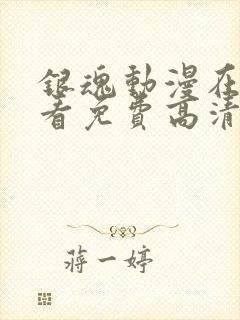 銀魂動漫在
看免費高清
蔣一婷